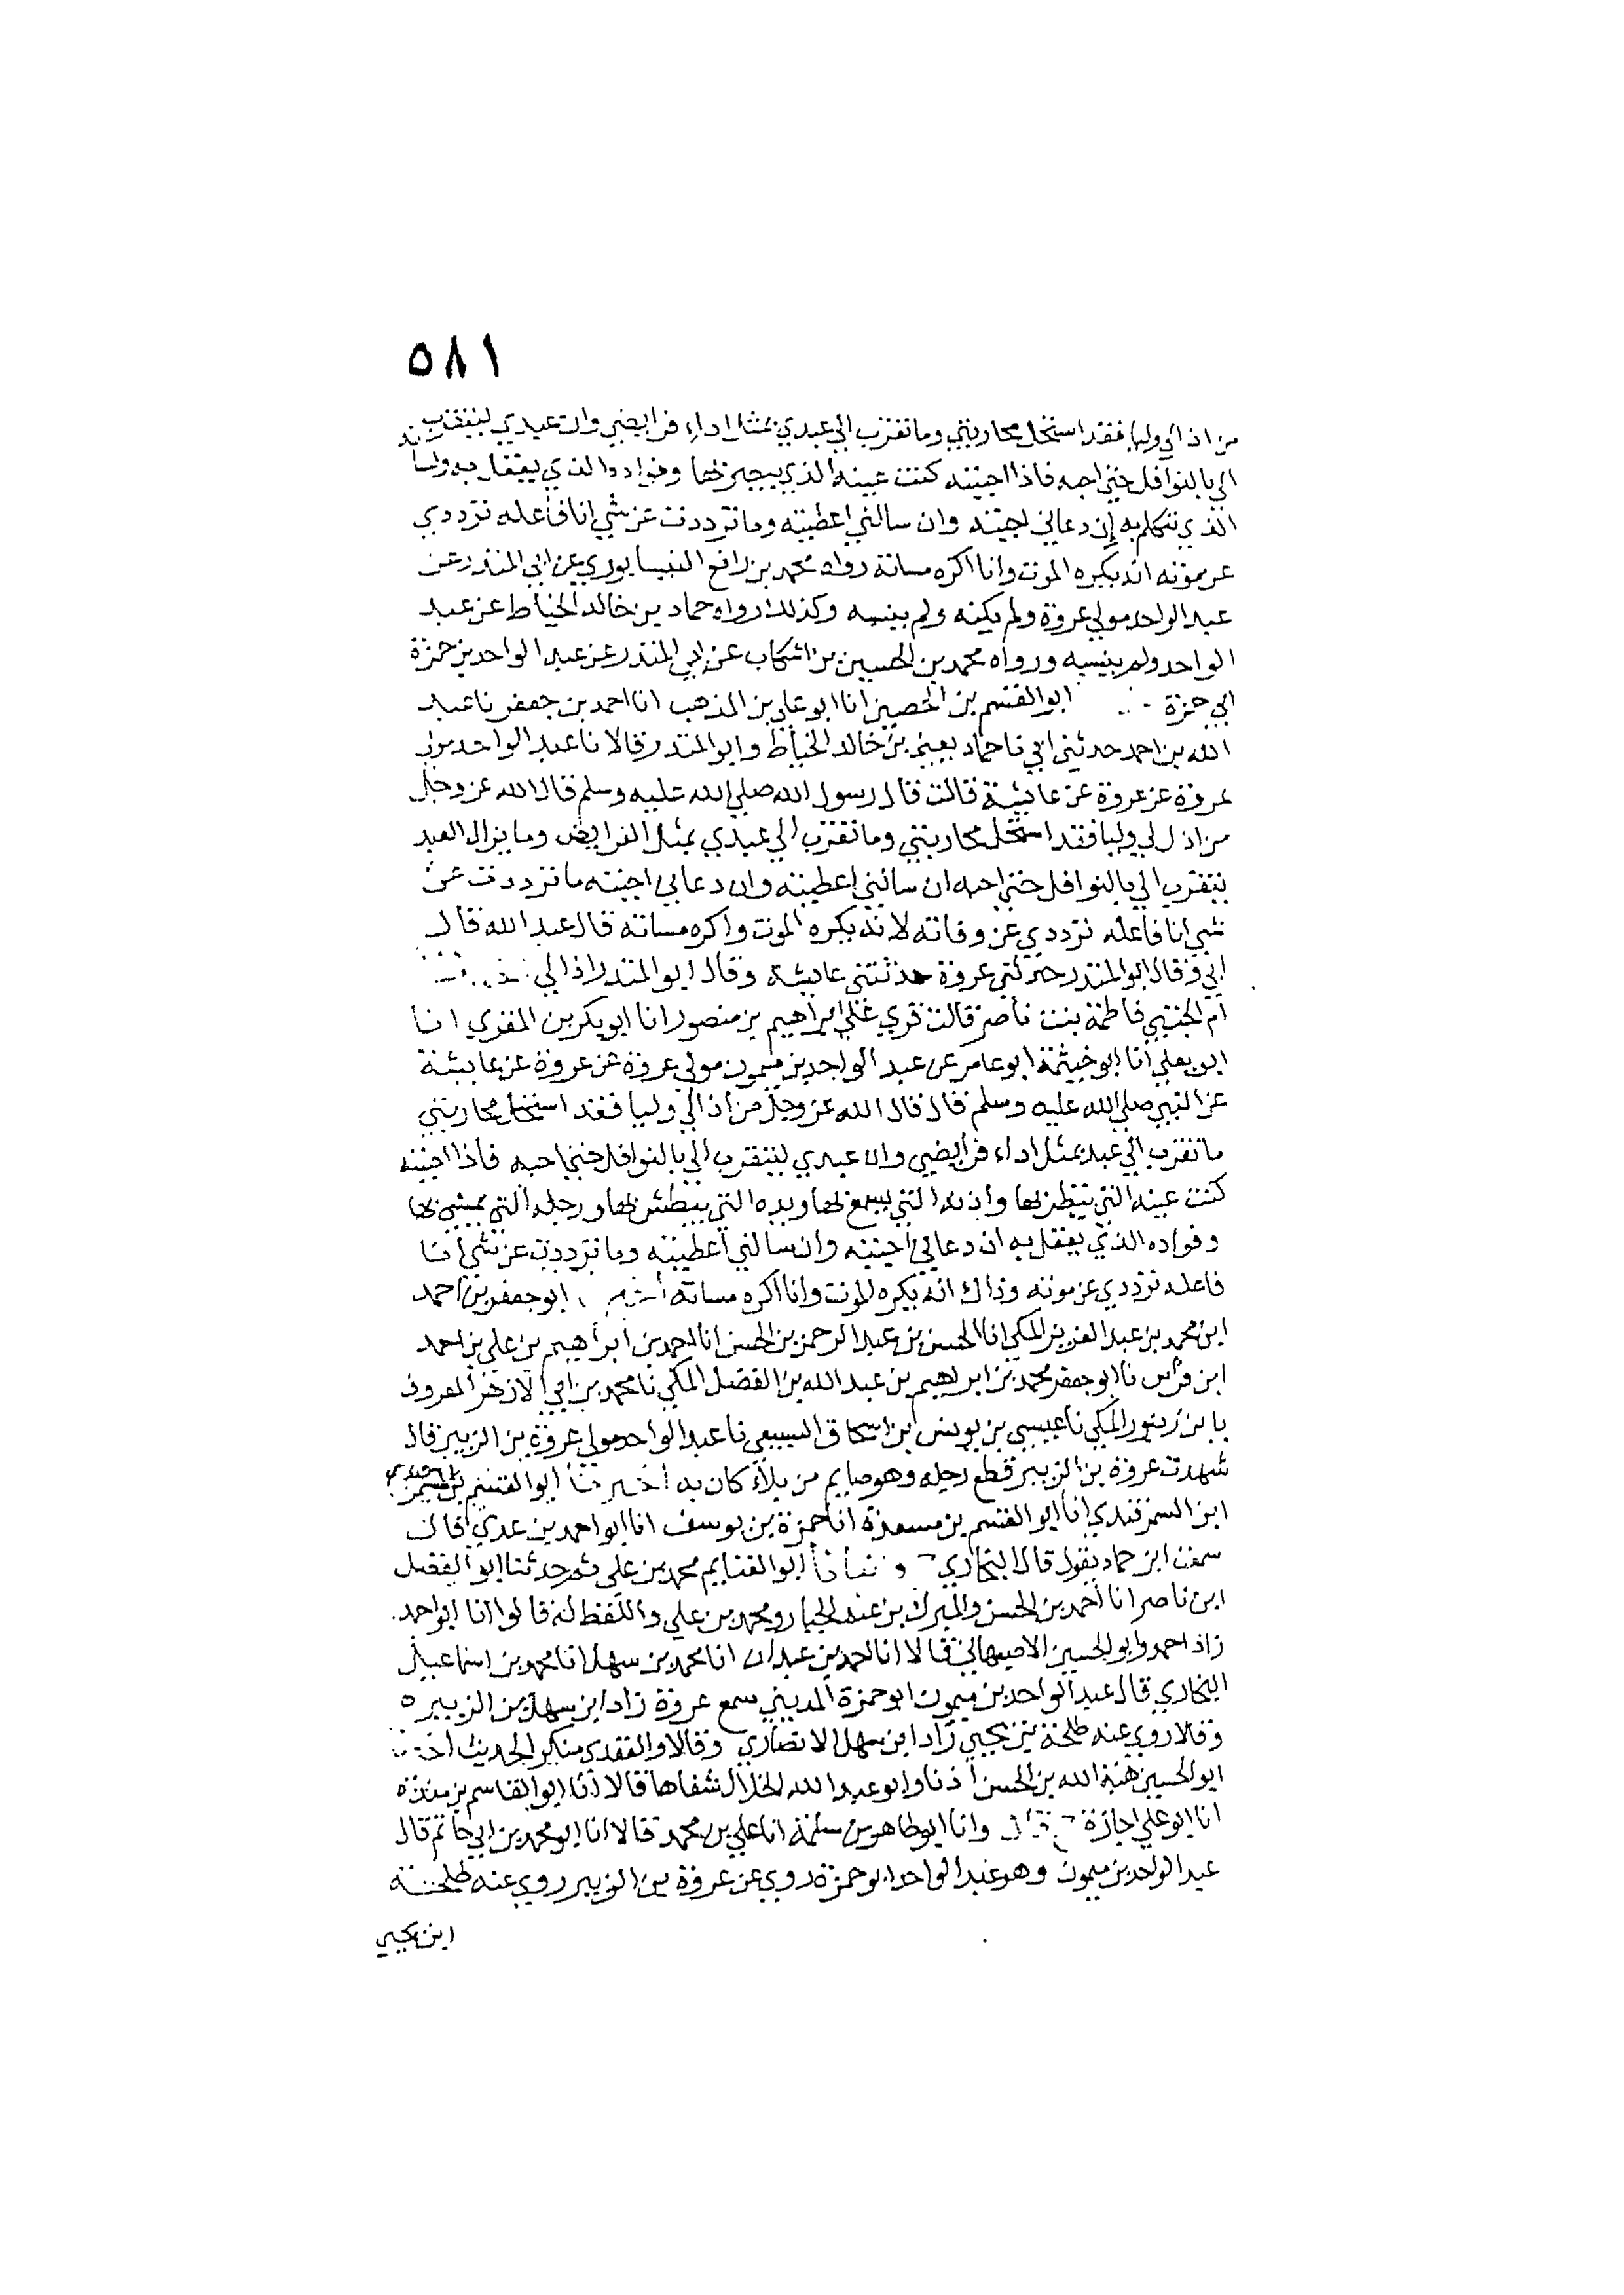 ٥٨١
من اذى لي وليا فقد استحل محاربتي وما تقرب الي عبدي بمثل اداء فرايضي وان عبدي ليتقرب
الي بالنوافل حتي احبه فاذا احببته كنت عينه الذي يبصر بها وفواده الذي يعقل به ولسانه
الذي يتكلم به إن دعاني اجبته وان سالني اعطيته وما ترددت عن شي انا فاعله ترددي
عن موته انه يكره الموت وانا اكره مساته رواه محمد بن رافع النيسابوري عن ابي المنذر عن
عبد الواحد مولي عروة ولم يكنه ولم ينسبه وكذلك رواه حماد بن خالد الخياط عن عبد
الواحد ولم ينسبه ورواه محمد بن الحسين بن اشكاب عن ابي المنذر عن عبد الواحد بن حمزة
ابي حمزة ابو القسم بن الحصين انا ابو علي بن المذهب انا احمد بن جعفر نا عبد
الله بن احمد حدثني ابي نا حماد يعني بن خالد الخياط وابو المنذر قالا نا عبد الواحد مولي
عروة عن عروة عن عايشة قالت قال رسول الله صلي الله عليه وسلم قال الله عز وجل
من اذل لي وليا فقد استحل محاربتي وما تقرب الي عبدي بمثل الفرايض وما يزال العبد
يتقرب الي بالنوافل حتي احبه ان سالني اعطيته وان دعاني اجبته ما ترددت عن
شي انا فاعله ترددي عن وفاته لانه يكره الموت واكره مساته قال عبد الله قال
ابي وقال ابو المنذر حدثني عروة حدثتني عايشة وقال ابو المنذر اذى لي
ام المجتبي فاطمة بنت ناصر قالت قري علي ابراهيم بن منصور انا ابو بكر بن المقري انا
ابو يعلي انا ابو خيثمة ابو عامر عن عبد الواحد بن ميمون مولي عروة عن عروة عن عايشة
عن النبي صلي الله عليه وسلم قال قال الله عز وجل من اذى لي وليا فقد استحل محاربتي
ما تقرب الي عبد بمثل اداء فرايضي وان عبدي ليتقرب الي بالنوافل حتي احبه فاذا احببته
كنت عينه التي ينظر بها واذنه التي يسمع بها ويده التي يبطش بها ورجله التي يمشي بها
وفواده الذي يعقل به ان دعاني اجبته وان سالني اعطيته وما ترددت عن شي انا
فاعله ترددي عن موته وذاك انه يكره الموت وانا اكره مساته ابو جعفر بن احمد
ابن محمد بن عبد العزيز المكي انا الحسن بن عبد الرحمن بن الحسن انا احمد بن ابراهيم بن علي بن احمد
ابن فراس نا ابو جعفر محمد بن ابراهيم بن عبد الله بن الفضل المكي نا محمد بن ابي الازهر المعروف
بابن زنبور المكي نا عيسي بن يونس ابن اسحاق السبيعي نا عبد الواحد مولي عروة بن الزبير قال
شهدت عروة بن الزبير قطع رجله وهو صايم من بلاء كان به اخبرنا ابو القسم بن
ابن السمرقندي انا ابو القسم بن مسعدة انا حمزة بن يوسف انا ابو احمد بن عدي قال
سمعت ابن حماد يقول قال البخاري وانبانا ابو الغنايم محمد بن علي ثم حدثنا ابو الفضل
ابن ناصر انا احمد بن الحسن والمبرك بن عبد الجبار ومحمد بن علي واللفظ له قالوا انا ابو احمد
زاد احمد وابو الحسين الاصبهاني قالا انا احمد بن عبدان انا محمد بن سهل انا محمد بن اسماعيل
البخاري قال عبد الواحد بن ميمون ابو حمزة المديني سمع عروة زاد ابن سهل بن الزبير ه
وقالا روي عنه طلحة بن يحيي زاد ابن سهل الانصاري وقالا والعقدي منكر الحديث
ابو الحسين هبة الله بن الحسن اذنا وابو عبد الله الخلال شفاها قالا انا ابو القاسم بن منده
انا ابو علي اجازة ح قال وانا ابو طاهر بن سلمة انا علي بن محمد قالا انا ابو محمد بن ابي حاتم قال
عبد الواحد بن ميمون وهو عبد الواحد ابو حمزة روي عن عروة بن الزبير روي عنه طلحة
ابن يحيي